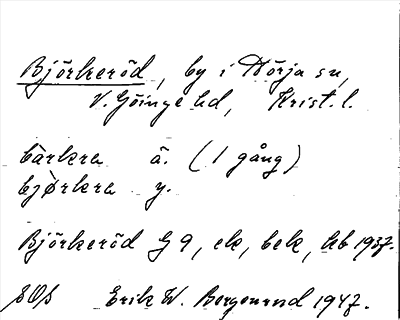 Björkeröd, by i Nörja sn,
V. Göinge hd, Krist. l.
bàrkra ä. (1 gång)
bjørkra y.
Björkeröd G 9, ek, bek, kb 1937.
Erik W. Bergenrud 1947.